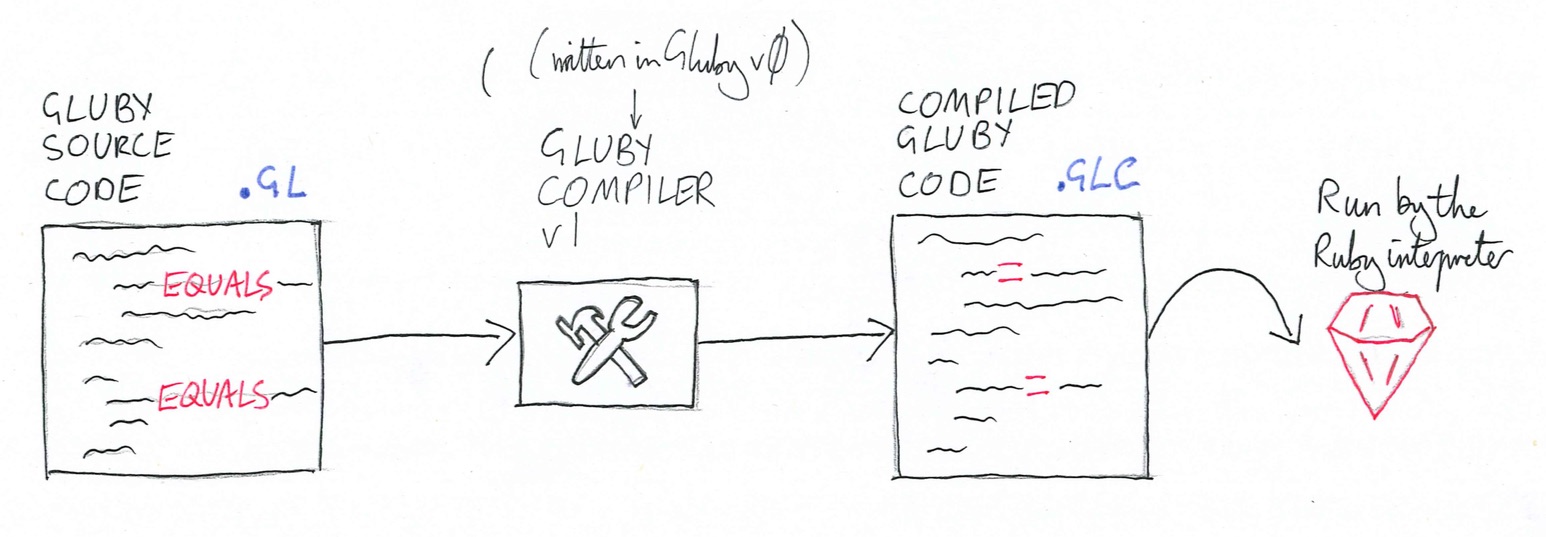 GLUBY
SOURCE
CODE .GL
EQUALS
EQUALS
( (written in Gluby vØ)
GLUBY
COMPILER
v1
COMPILED
GLUBY
CODE .GLC
=
=
Run by the
Ruby interpreter